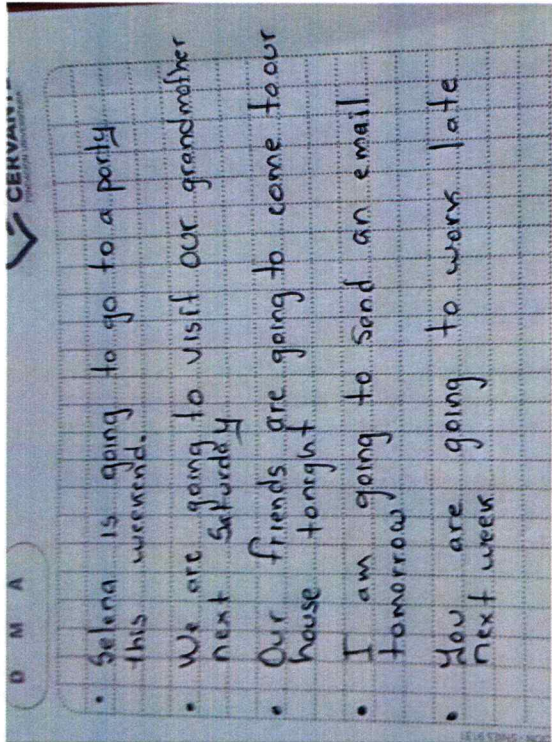 D M A
CERVANT
• Selena is going to go to a party
this weekend.
• We are going to visit our grandmother
next Saturday
• Our friends are going to come to our
house tonight
• I am going to send an email
tomorrow
• You are going to work late
next week